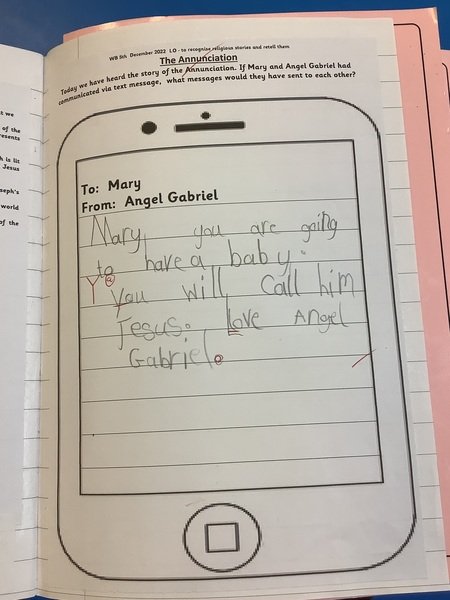 WB 5th December 2022 LO - to recognise religious stories and retell them
The Annunciation
Today we have heard the story of the Annunciation. If Mary and Angel Gabriel had
communicated via text message, what messages would they have sent to each other?
To: Mary
From: Angel Gabriel
Mary, you are going
to have a baby.
You will call him
Jesus. Love Angel
Gabriel.
t we
of the
resents
h is lit
Jesus
seph's
world
of the